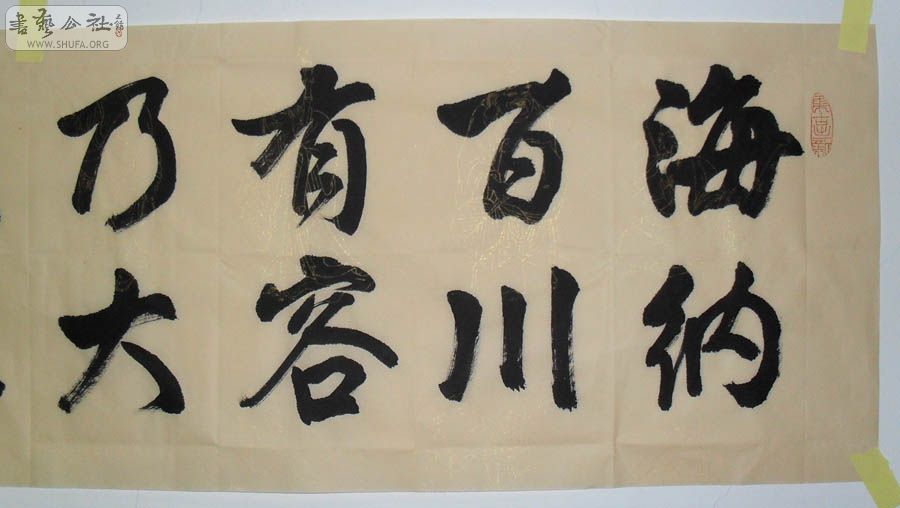 海纳
百川
有容
乃大
書藝公社
WWW.SHUFA.ORG